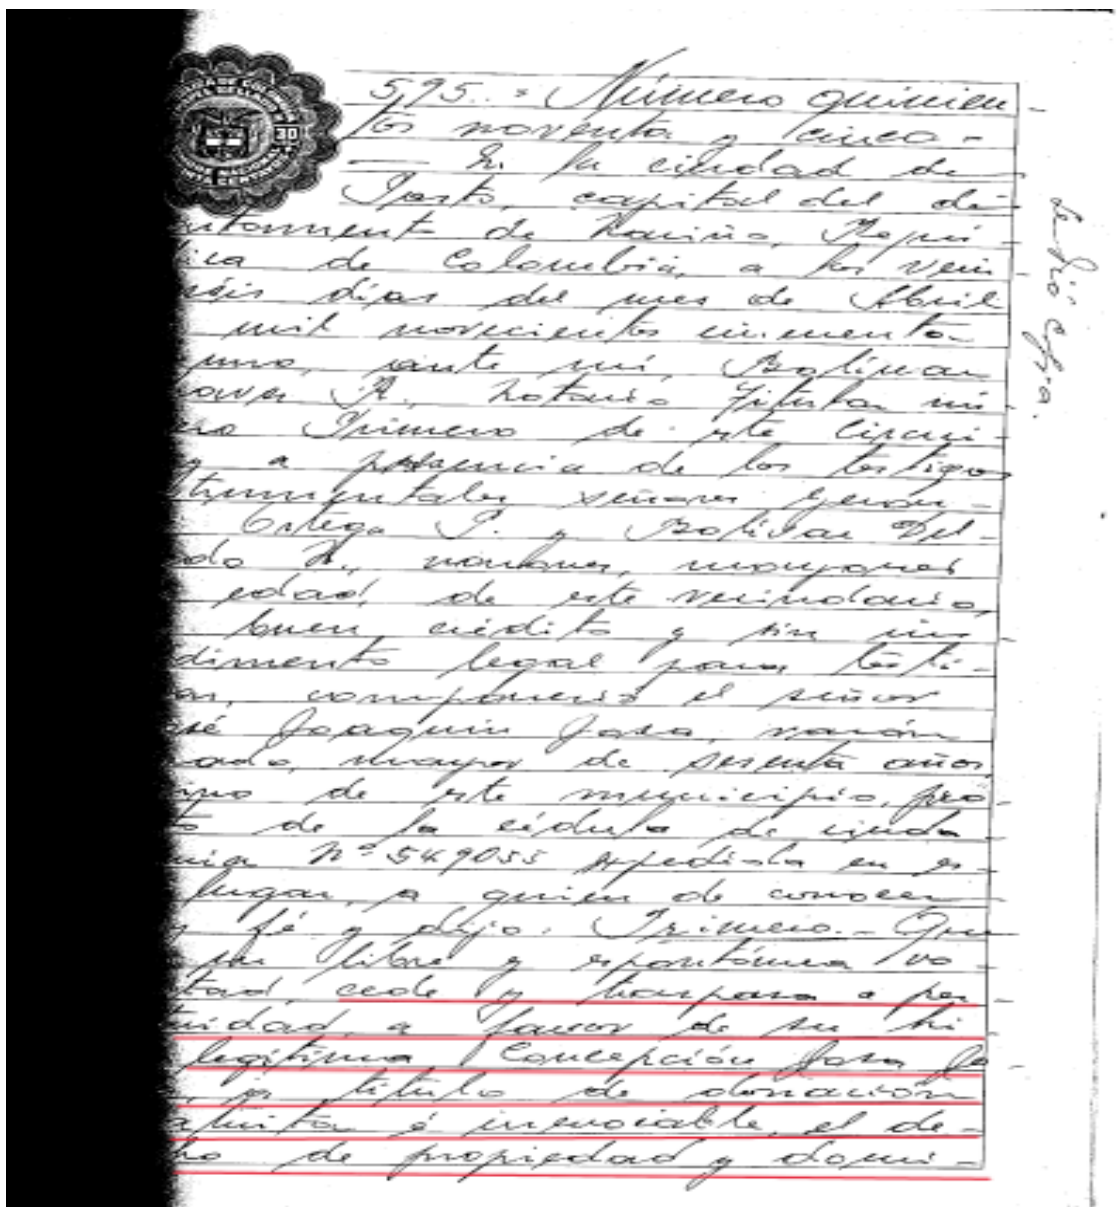 595.. = Número quinien-
tos noventa y cinco.-
— En la ciudad de
Pasto, capital del de-
rtamento de Nariño, Repú-
lica de Colombia, a los vein
séis días del mes de Abril
mil novecientos cincuenta
uno, ante mí, Bolívar
R., Notario Titular nú-
ero Primero de este Circui-
y a presencia de los testigos
trumentales señores Geron-
Ortega P. y Bolívar Del-
do H., varones, mayores
edad, de este vecindario,
buen crédito y sin im-
dimento legal para testi-
ar, compareció el señor
osé Joaquín Josa, varón
sado, mayor de sesenta años,
ino de este municipio, pro-
to de la cédula de ciuda-
nía Nº 549055 expedida en es-
lugar, a quien de conocer
y fé y dijo: Primero.- Que
su libre y espontánea vo-
tad, cede y traspasa a per-
uidad, a favor de su hi-
legítima Concepción Josa Jo-
, a título de donación
atuita é irrevocable, el de-
ho de propiedad y domi-